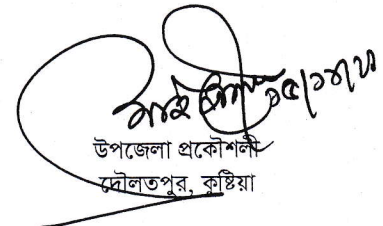 উপজেলা প্রকৌশলী
দৌলতপুর, কুষ্টিয়া